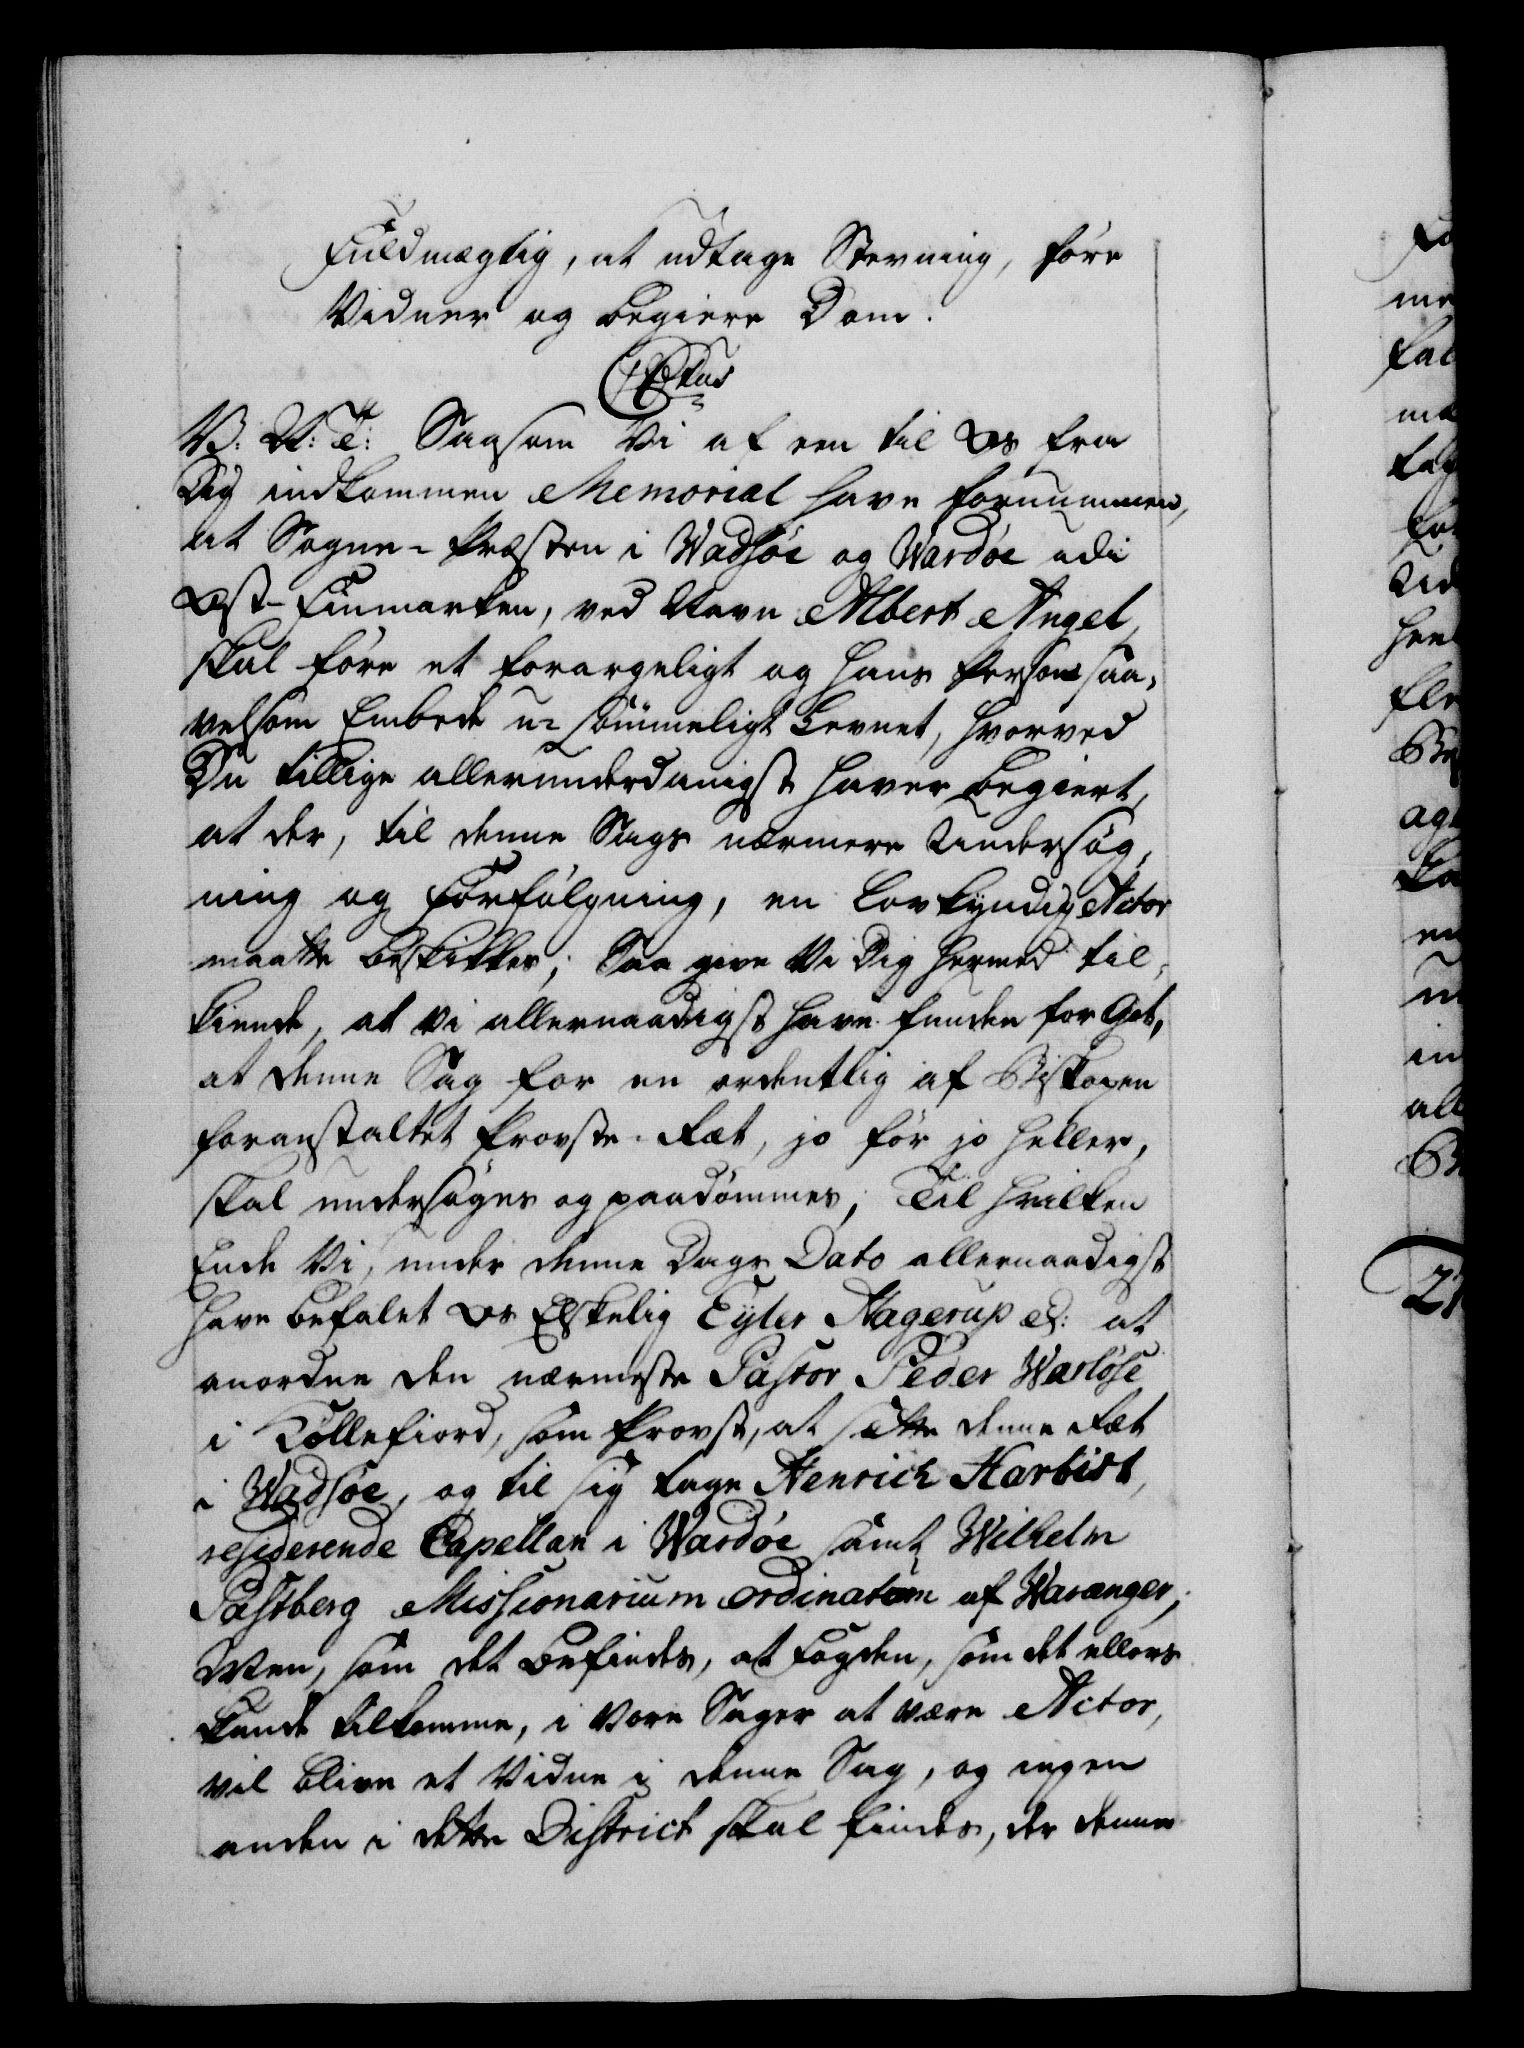 Fuldmægtig, at udtage Stevning, føre
Vidner og begiere Dom.
V: G: T: Saasom Vi af een til Os fra
Dig indkommen Memorial have fornummen,
at Sogne-Præsten i Wadsøe og Wardøe udi
Ost-Finmarken, ved Navn Albert Angel,
skal føre et forargeligt og hans Person saa-
velsom Embede u-sømmeligt Levnet, hvorved
Du tillige allerunderdanigst haver begiert,
at der, til denne Sags nærmere Undersøg-
ning og Forfølgning, en Lovkyndig Actor
maatte beskikkes; Saa give Vi Dig hermed til-
kiende, at Vi allernaadigst have funden for Got,
at denne Sag for en ordentlig af Biskopen
foranstaltet Provste-Ræt, jo før jo heller,
skal undersøges og paadømmes; Til hvilken
Ende Vi, under denne Dags Dato allernaadigst
have befalet Os Elskelig Eyler Hagerup &: at
anordne den nærmeste Pastor Peder Warløse
i Kollefiord, som Provst, at sætte denne Ræt
i Wadsøe, og til sig tage Henrich Harbist,
residerende Capellan i Wardøe samt Wilhelm
Pastberg Missionarium ordinatum af Waranger;
Men, som det befindes, at Fogden, som det ellers
kunde tilkomme, i Vore Sager at være Actor,
vil blive et Vidne i denne Sag, og ingen
anden i dette District skal findes, der denne